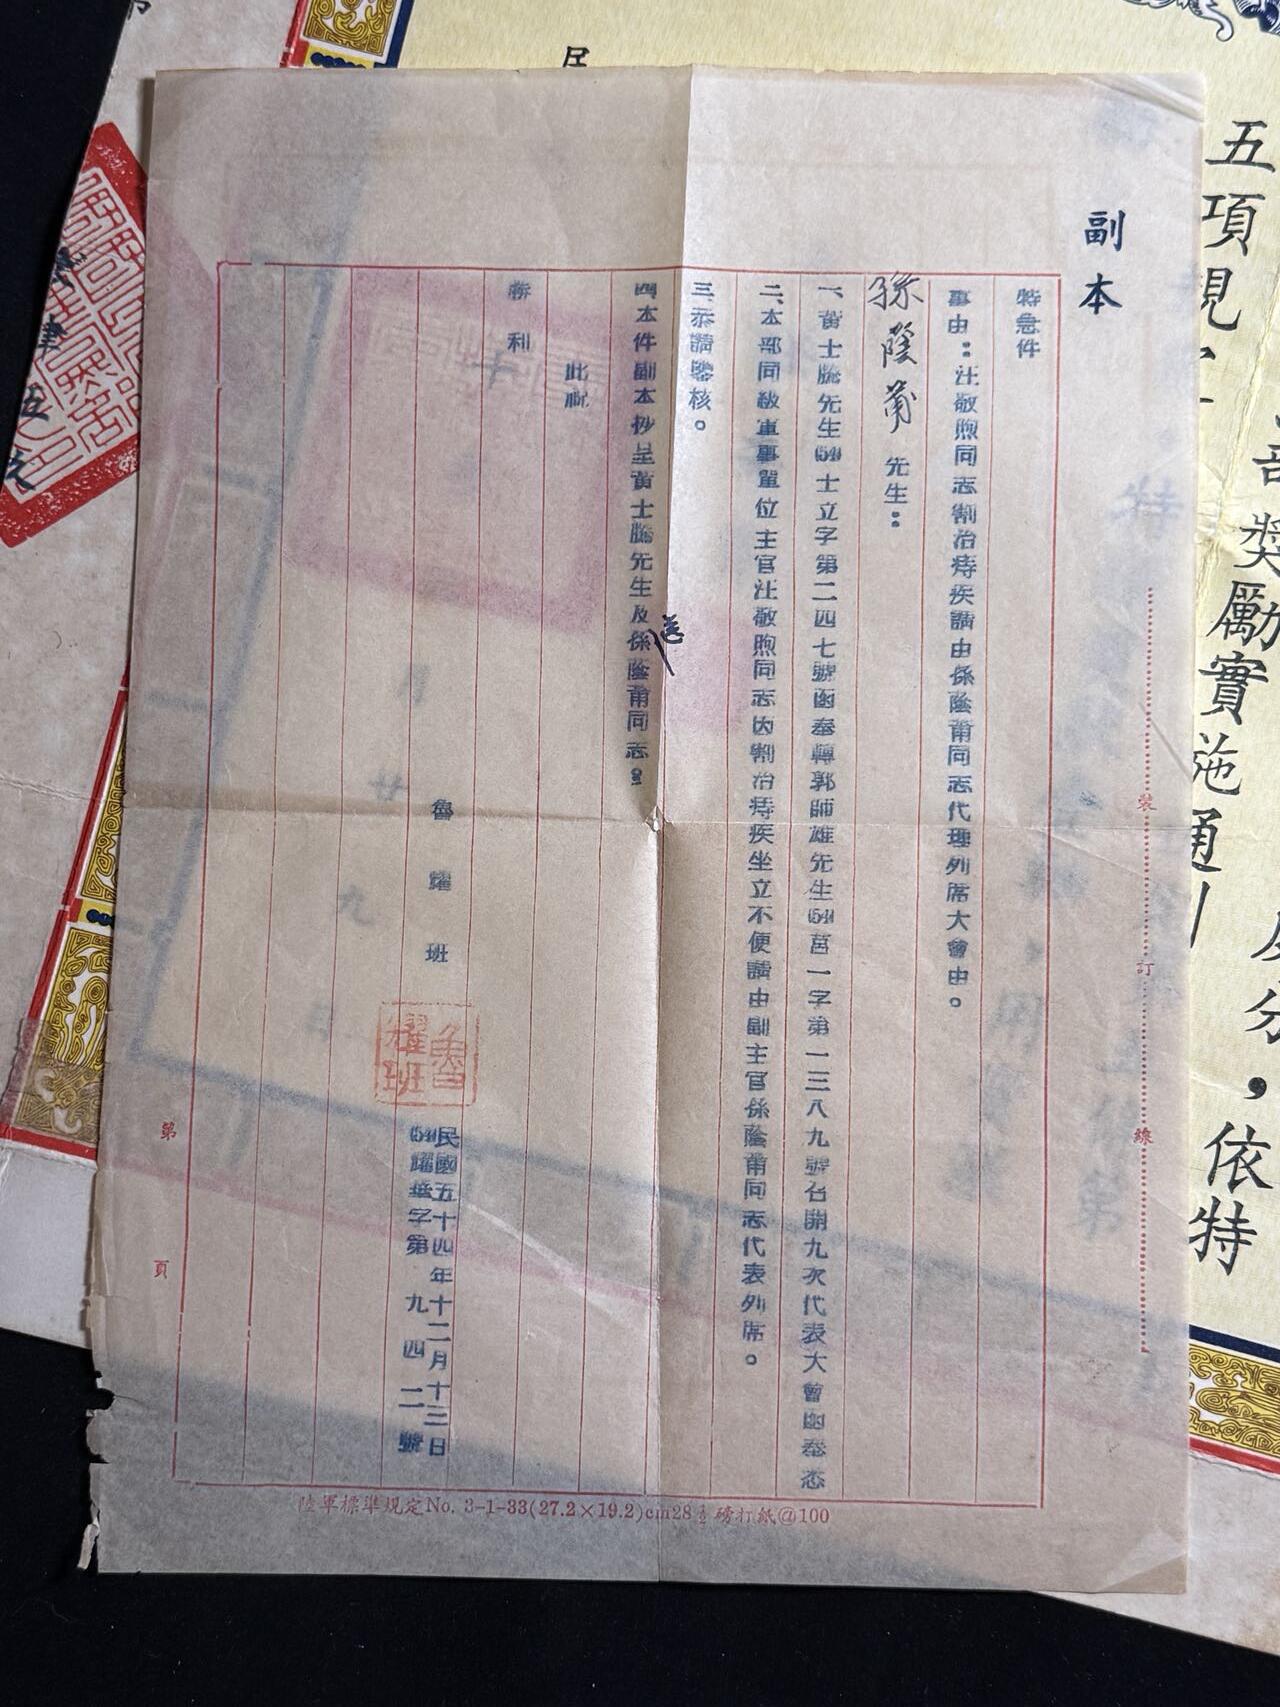 副本
特急件
事由：汪敬煦同志割治痔疾請由孫蔭甫同志代理列席大會由。
孫蔭甫 先生：
一、黃士騰先生(54)士立字第二四七號函奉轉郭師雄先生(54)莒一字第一三八九號召開九次代表大會函奉悉
二、本部同級軍事單位主官汪敬煦同志因割治痔疾坐立不便請由副主官孫蔭甫同志代表列席。
三、恭請鑒核。
四本件副本抄呈黃士騰先生及送孫蔭甫同志。
此祝
勝利
魯耀班
魯耀班
民國五十四年十二月十三日
(54)耀字第九四二號
裝
訂
線
第
頁
陸軍標準規定No. 3-1-33(27.2×19.2)cm28½磅打紙@100
五項規
獎勵實施通
分，依特